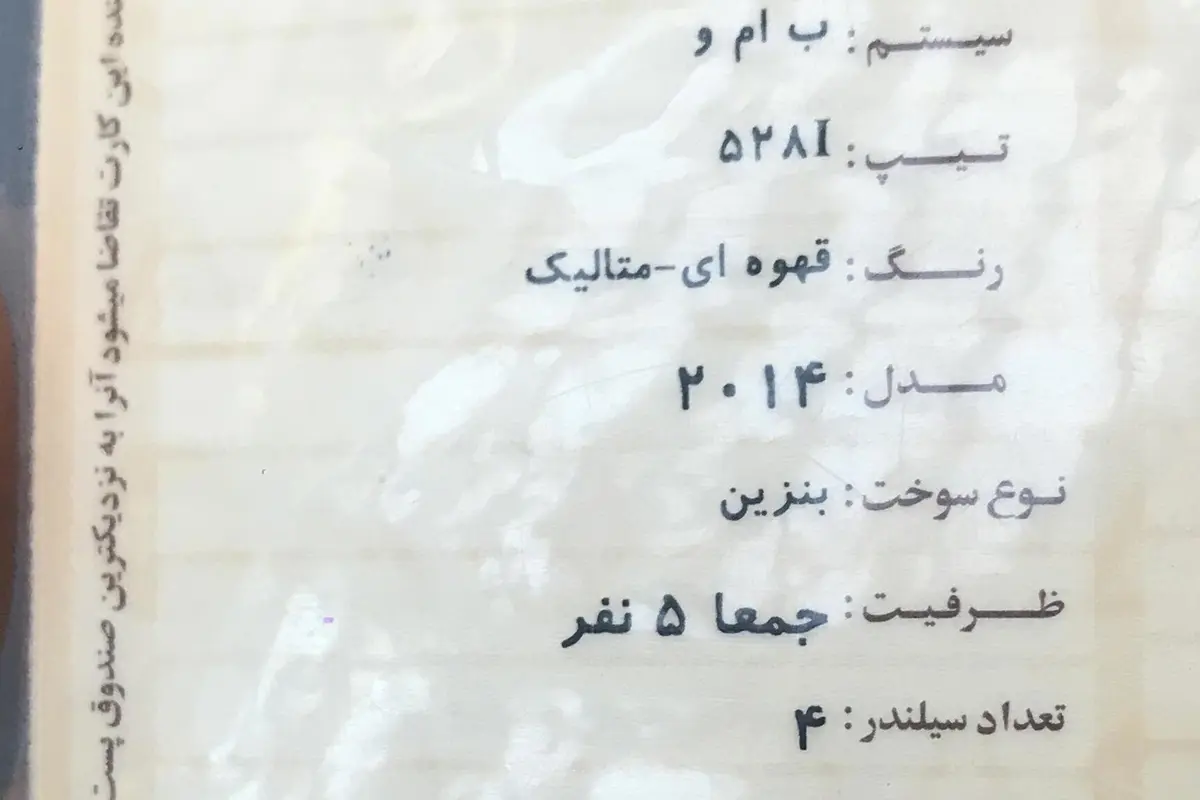 سیستم: ب ام و
تیپ: ۵۲۸I
رنگ: قهوه ای-متالیک
مدل: ۲۰۱۴
نوع سوخت: بنزین
ظرفیت: جمعا ۵ نفر
تعداد سیلندر: ۴
این کارت تقاضا میشود آنرا به نزدیکترین صندوق پست